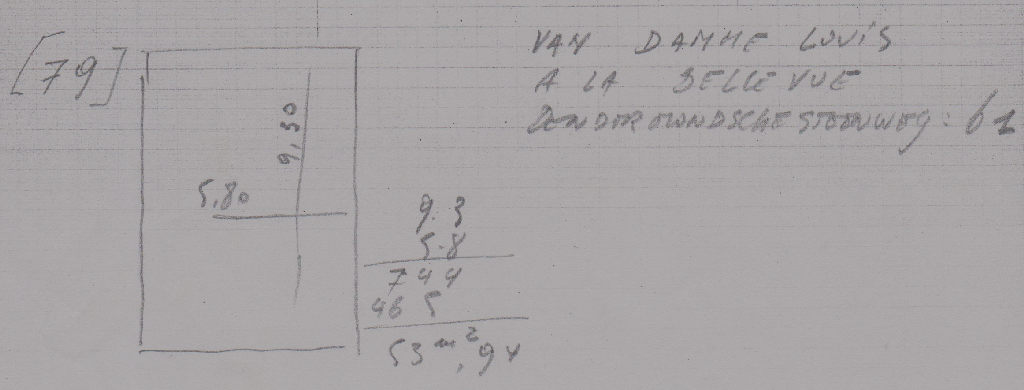 [79]
VAN DAMME LOUIS
A LA BELLE VUE
DENDERMONDSCHE STEENWEG: 61
9,30
5,80
9.3
5.8
744
46 5
53 m²,94